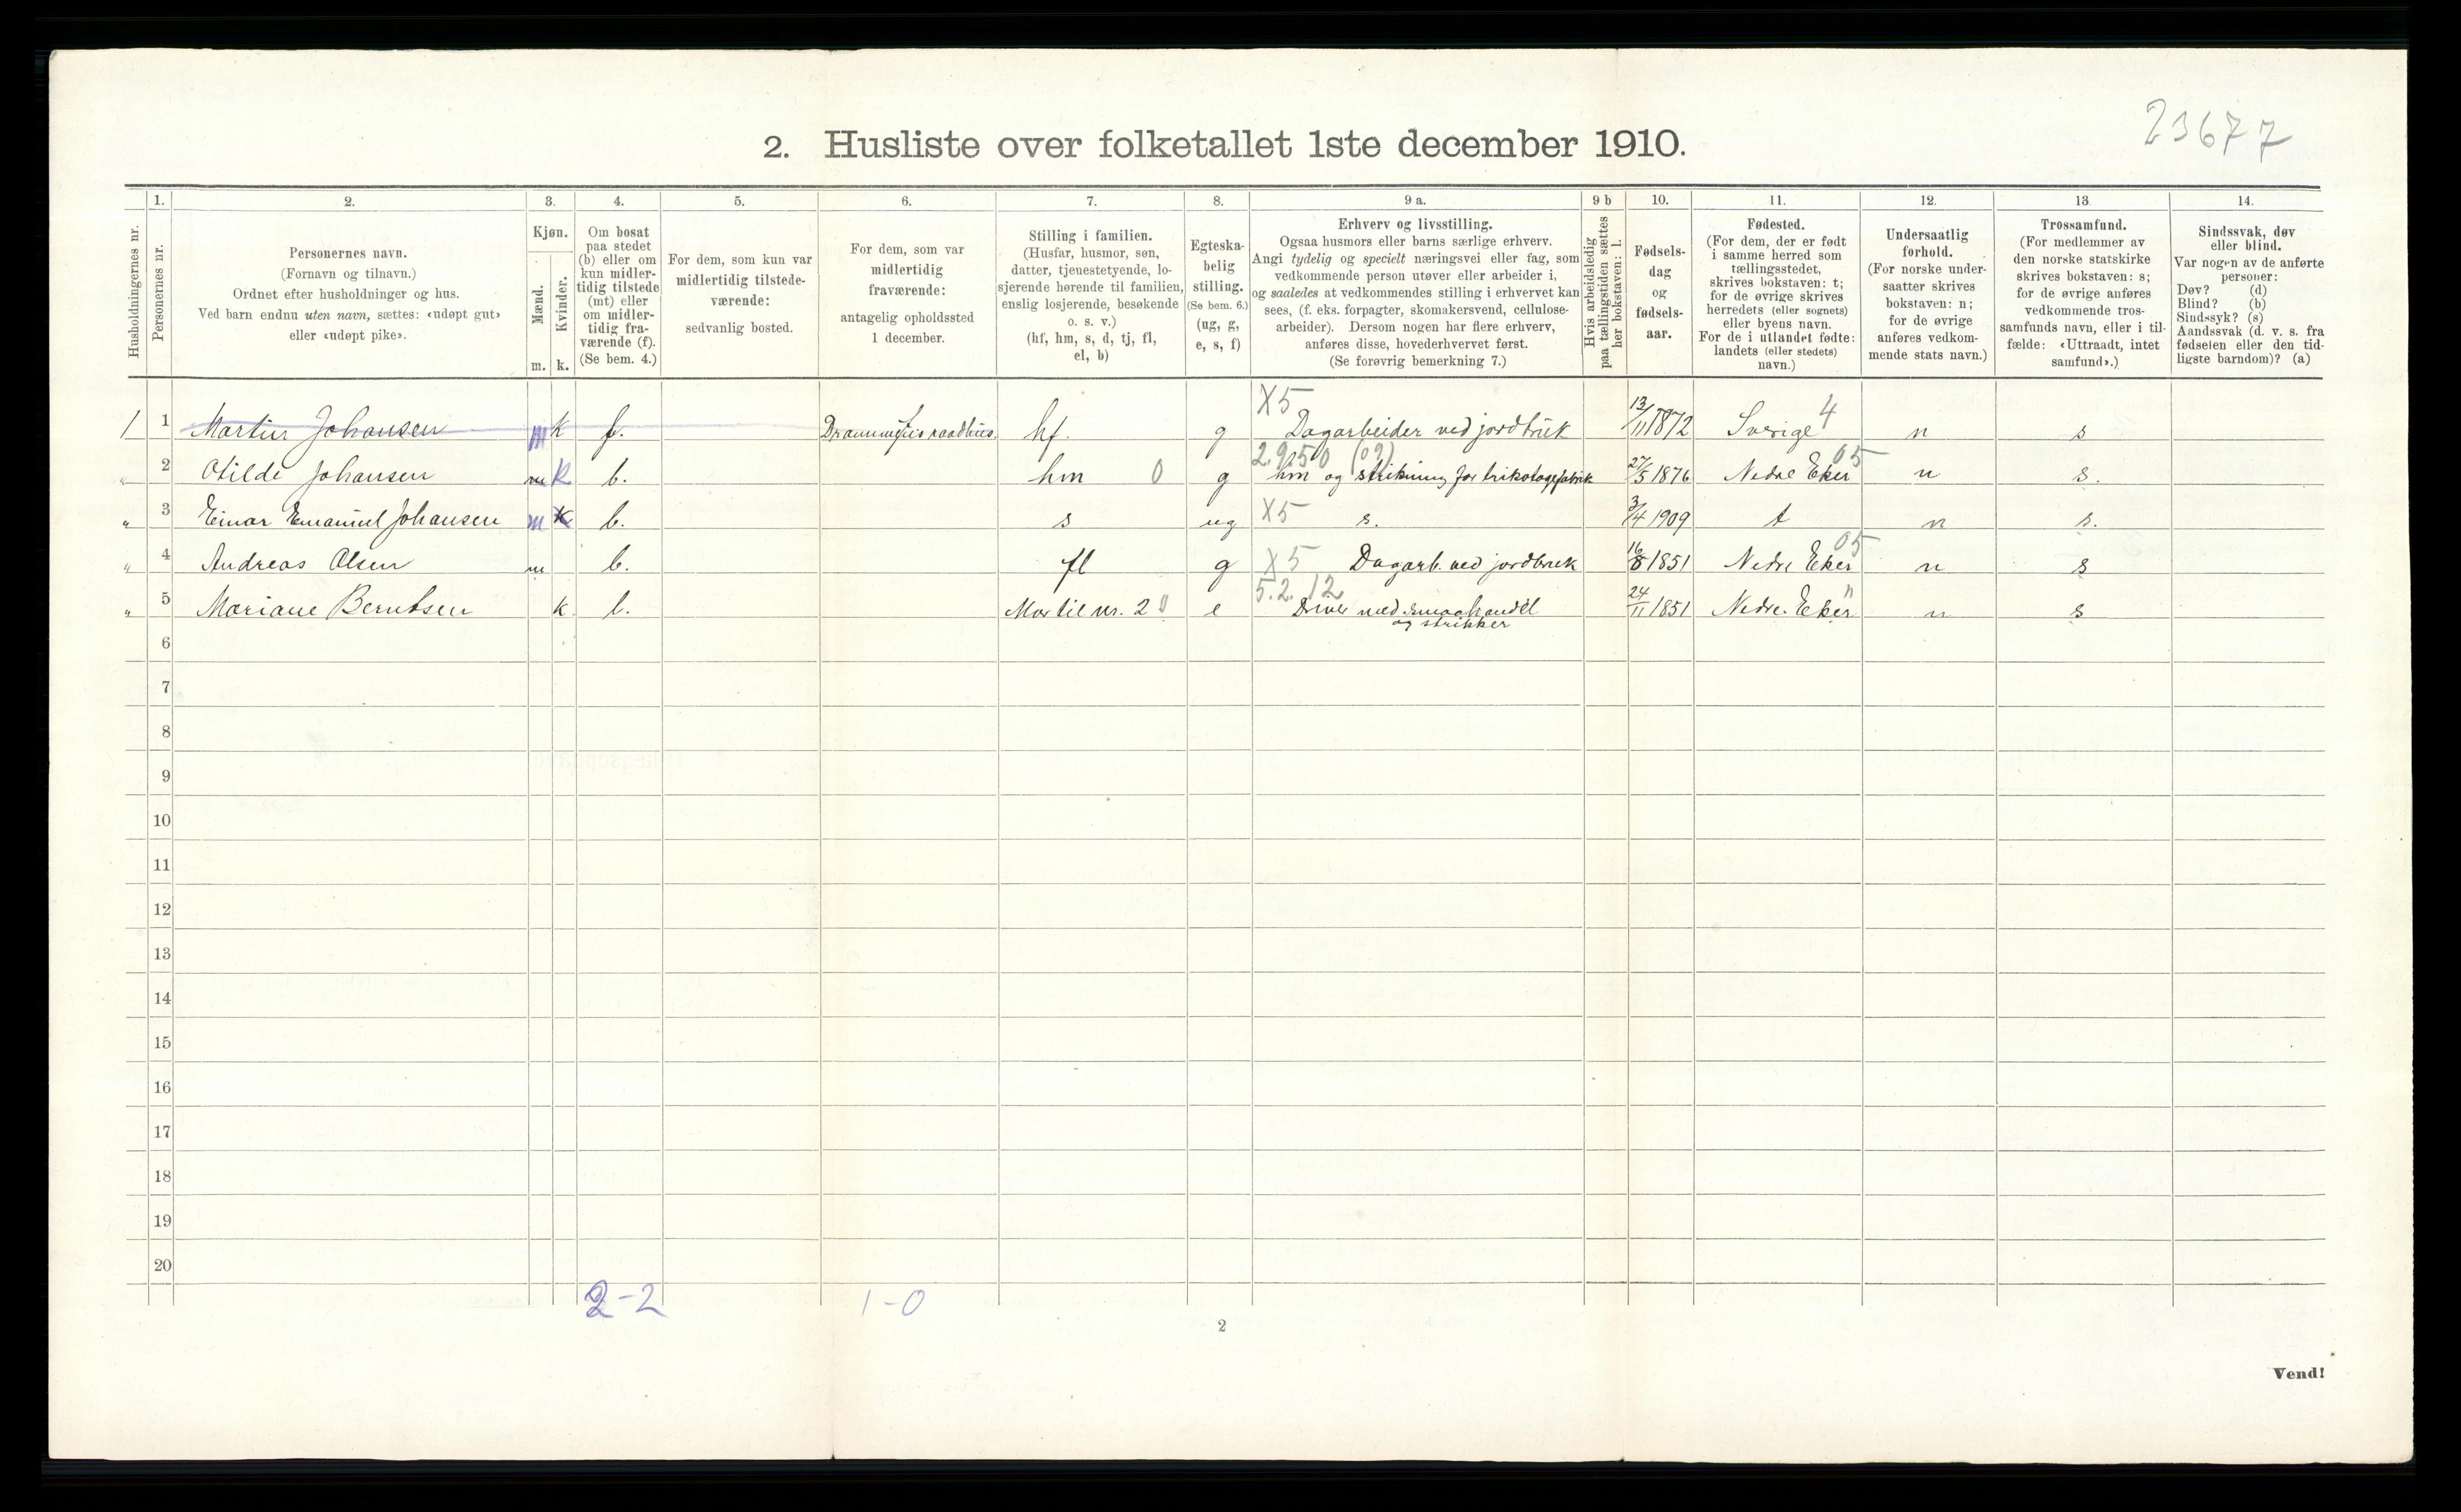 23677
2. Husliste over folketallet 1ste december 1910.
1. 2. 3. 4. 5. 6. 7. 8. 9 a. 9 b 10. 11. 12. 13. 14.
Husholdningernes nr.
Personernes nr.
Personernes navn.
(Fornavn og tilnavn.)
Ordnet efter husholdninger og hus.
Ved barn endnu uten navn, sættes: «udøpt gut»
eller «udøpt pike».
Kjøn.
Mænd.
Kvinder.
m. k.
Om bosat
paa stedet
(b) eller om
kun midler-
tidig tilstede
(mt) eller
om midler-
tidig fra-
værende (f).
(Se bem. 4.)
For dem, som kun var
midlertidig tilstede-
værende:
sedvanlig bosted.
For dem, som var
midlertidig
fraværende:
antagelig opholdssted
1 december.
Stilling i familien.
(Husfar, husmor, søn,
datter, tjenestetyende, lo-
sjerende hørende til familien,
enslig losjerende, besøkende
o. s. v.)
(hf, hm, s, d, tj, fl,
el, b)
Egteska-
belig
stilling.
(Se bem. 6.)
(ug, g,
e, s, f)
Erhverv og livsstilling.
Ogsaa husmors eller barns særlige erhverv.
Angi tydelig og specielt næringsvei eller fag, som
vedkommende person utøver eller arbeider i,
og saaledes at vedkommendes stilling i erhvervet kan
sees, (f. eks. forpagter, skomakersvend, cellulose-
arbeider). Dersom nogen har flere erhverv,
anføres disse, hovederhvervet først.
(Se forøvrig bemerkning 7.)
Hvis arbeidsledig
paa tællingstiden sættes
her bokstaven: l.
Fødsels-
dag
og
fødsels-
aar.
Fødested.
(For dem, der er født
i samme herred som
tællingsstedet,
skrives bokstaven: t;
for de øvrige skrives
herredets (eller sognets)
eller byens navn.
For de i utlandet fødte:
landets (eller stedets)
navn.)
Undersaatlig
forhold.
(For norske under-
saatter skrives
bokstaven: n;
for de øvrige
anføres vedkom-
mende stats navn.)
Trossamfund.
(For medlemmer av
den norske statskirke
skrives bokstaven: s;
for de øvrige anføres
vedkommende tros-
samfunds navn, eller i til-
fælde: «Uttraadt, intet
samfund».)
Sindssvak, døv
eller blind.
Var nogen av de anførte
personer:
Døv? (d)
Blind? (b)
Sindssyk? (s)
Aandssvak (d. v. s. fra
fødselen eller den tid-
ligste barndom)? (a)
X5
1 1 Martin Johansen m k f. Drammens raadhus. hf. g Dagarbeider ved jordbruk 13/11 1872 Sverige 4 n s
2.950 (09) 05
" 2 Otilde Johansen m k b. hm 0 g hm og strikning for trikotagefabrik 27/5 1876 Nedre Eker n s.
" 3 Einar Emanuel Johansen m k b. s ug X5 s. 3/4 1909 t n s.
05
" 4 Andreas Olsen m b. fl g X5 Dagarb. ved jordbruk 16/8 1851 Nedre Eker n s
5.2.12 "
" 5 Mariane Berntsen k b. Mor til nr. 2 0 e Driver med smaahandel 24/11 1851 Nedre. Eker n s
og strikker
6
7
8
9
10
11
12
13
14
15
16
17
18
19
20
2-2 1-0
2
Vend!